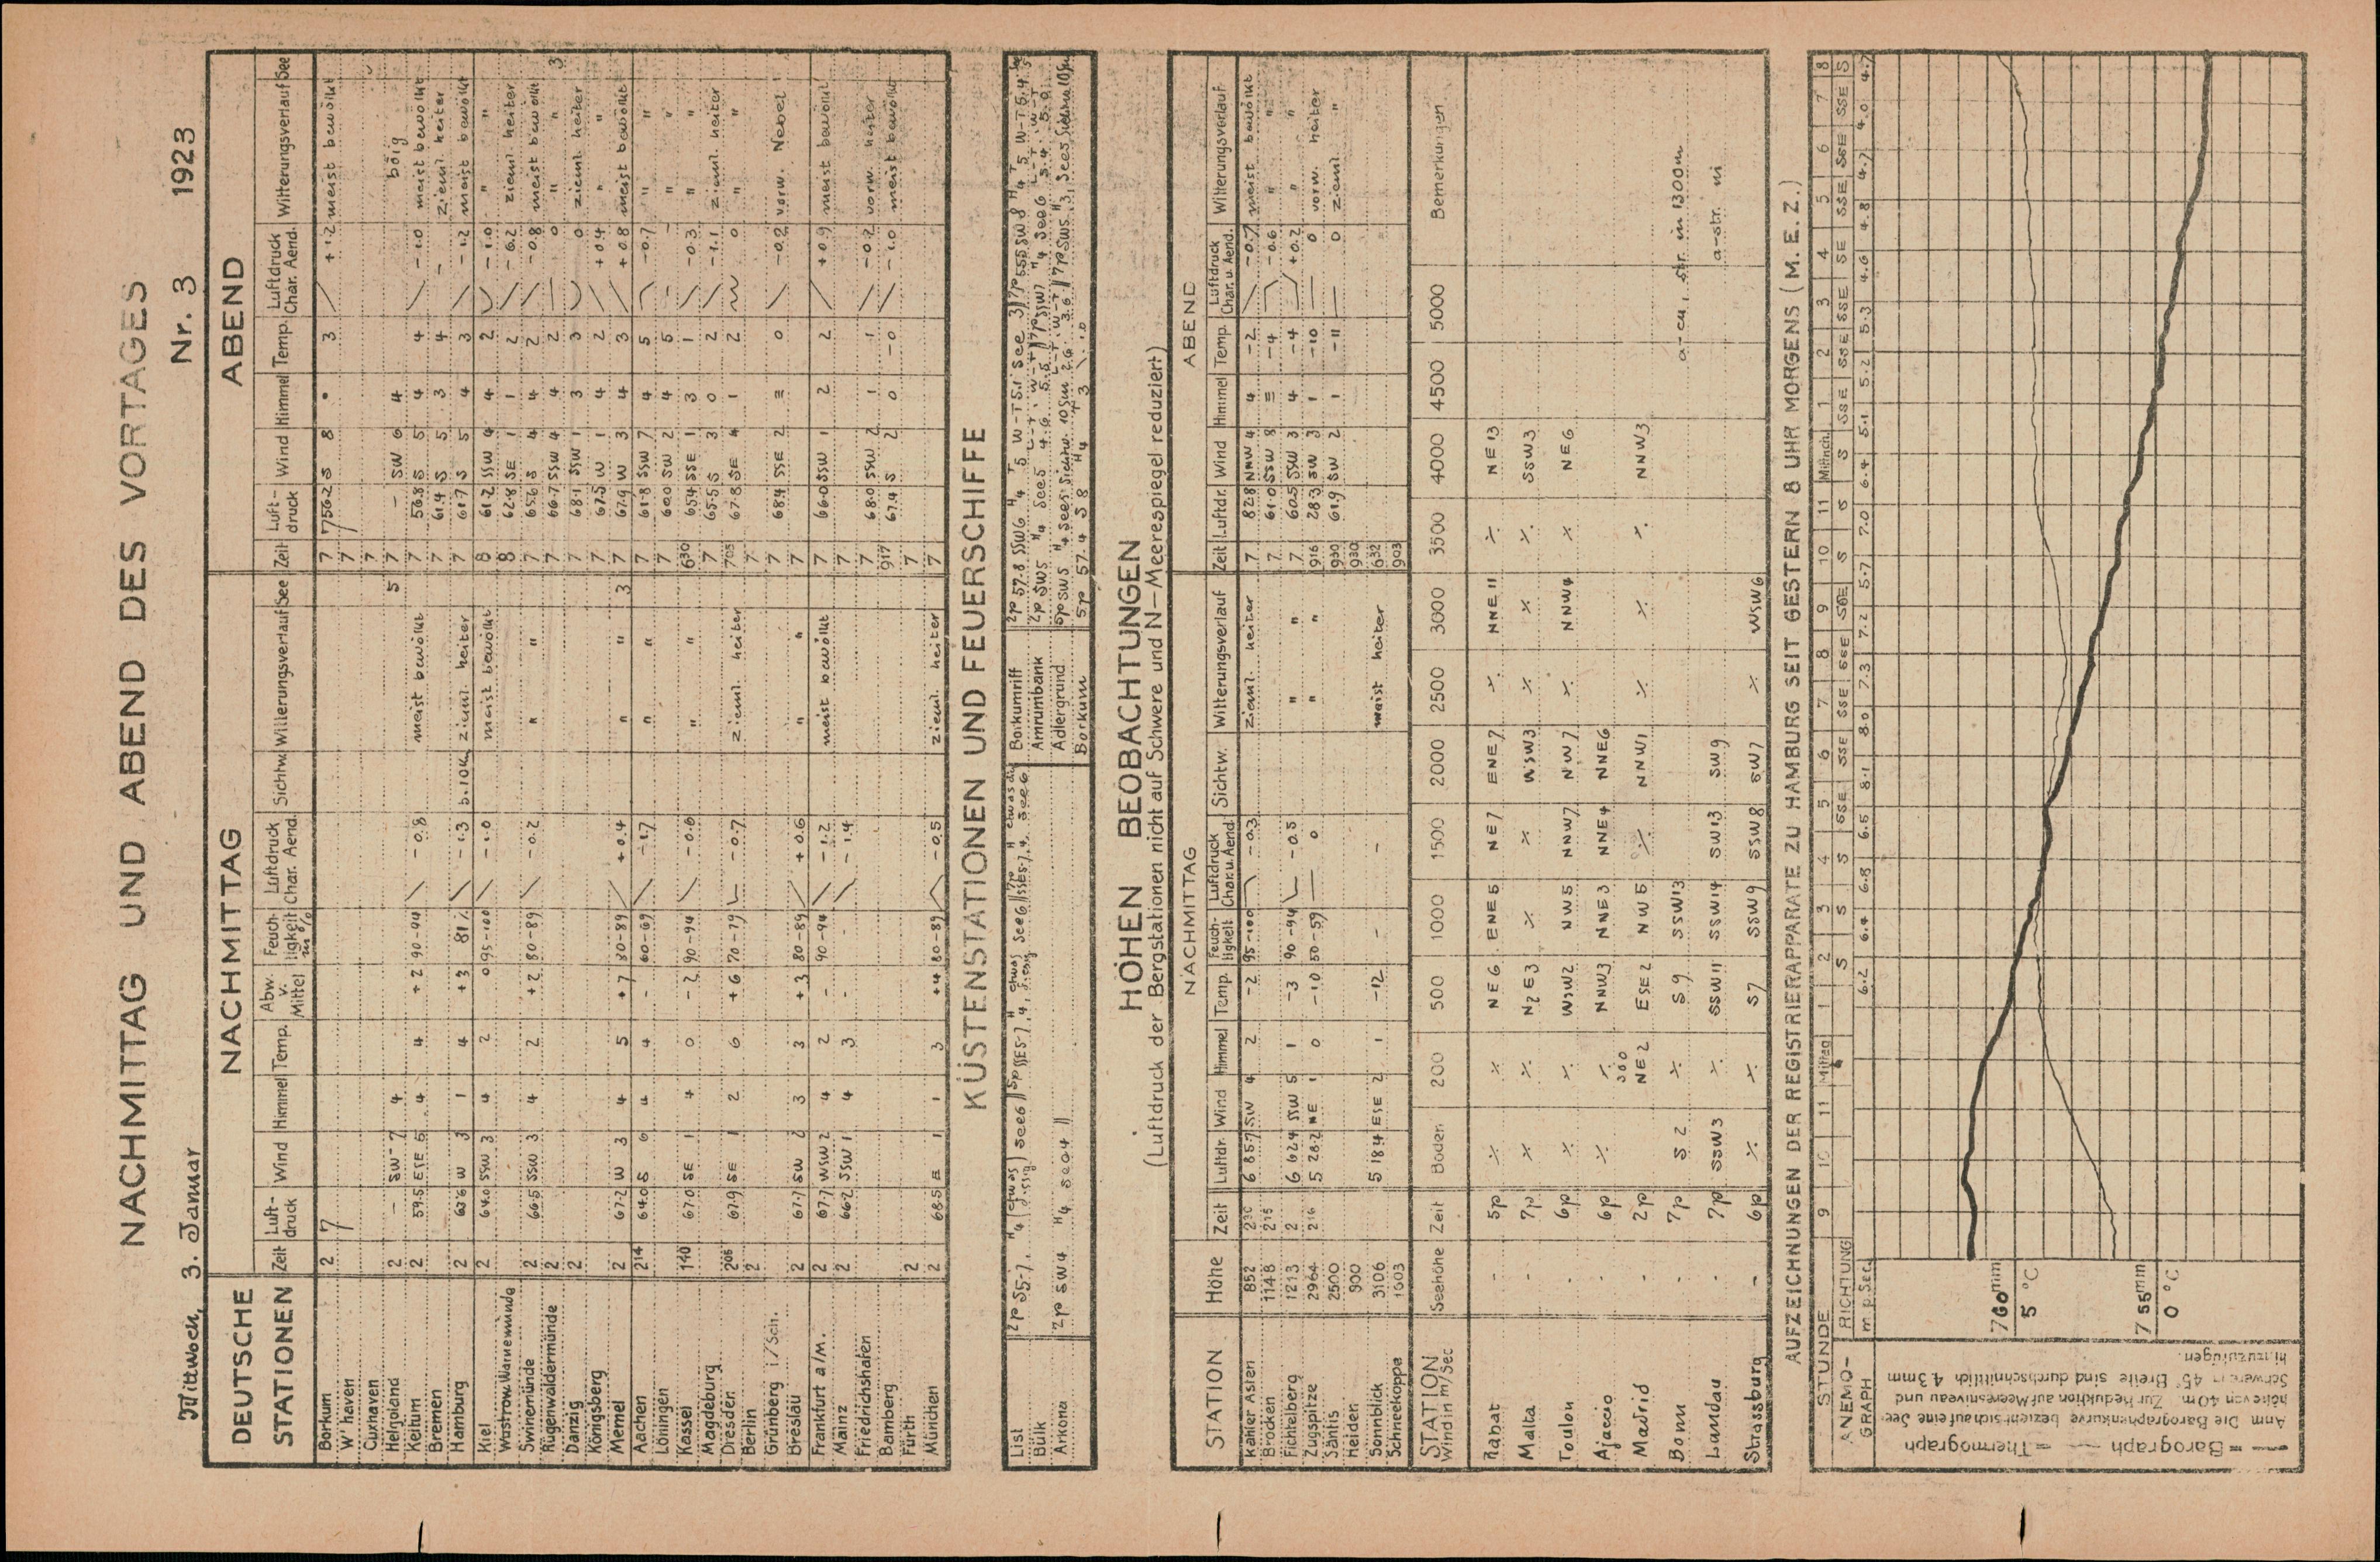 NACHMITTAG UND ABEND DES VORTAGES
Mittwoch, 3. Januar Nr. 3 1923
DEUTSCHE STATIONEN NACHMITTAG ABEND
Zeit Luft-druck Wind Himmel Temp. Abw. v. Mittel Feuch-tigkeit in % Luftdruck Char. Aend. Sichtw. Witterungsverlauf See Zeit Luft-druck Wind Himmel Temp. Luftdruck Char. Aend. Witterungsverlauf See
Borkum 2 7 756.2 S 8 3 +1.2 meist bewölkt
W'haven 7
Cuxhaven 7
Helgoland 2 – SW 7 4 5 7 – SW 6 4 böig
Keitum 2 59.5 ESE 5 4 4 +2 90-94 -0.8 meist bewölkt 7 56.8 S 5 4 4 -1.0 meist bewölkt
Bremen 7 61.4 S 5 3 4 – zieml. heiter
Hamburg 2 63.6 W 3 1 4 +3 81% -1.3 b.10K zieml. heiter 7 61.7 S 5 4 3 -1.2 meist bewölkt
Kiel 2 64.0 SSW 3 4 2 0 95-100 -1.0 meist bewölkt 8 61.2 SSW 4 4 2 -1.0 " "
Wustrow Warnemünde 8 62.8 SE 1 1 2 -0.2 zieml. heiter
Swinemünde 2 66.5 SSW 3 4 2 +2 80-89 -0.2 " " 7 65.6 S 4 4 2 -0.8 meist bewölkt
Rügenwaldermünde 2 7 66.7 SSW 4 4 2 0 " " 3
Danzig 2 7 68.1 SSW 1 3 3 0 zieml. heiter
Königsberg 7 67.5 W 1 4 2 +0.4 " "
Memel 2 67.2 W 3 4 5 +7 80-89 +0.4 " " 3 7 67.9 W 3 4 3 +0.8 meist bewölkt
Aachen 2 14 64.0 S 6 4 4 – 60-69 -1.7 " " 7 61.8 SSW 7 4 5 -0.7 " "
Löningen 7 60.0 SW 2 4 5 – " "
Kassel 1 40 67.0 SE 1 4 0 -2 90-94 -0.6 " " 6 30 65.4 SSE 1 3 1 -0.3 " "
Magdeburg 7 65.5 S 3 0 2 -1.1 zieml. heiter
Dresden 2 05 67.9 SE 1 2 6 +6 70-79 -0.7 zieml. heiter 7 05 67.8 SE 4 1 2 0 " "
Berlin 2 7
Grünberg i/Sch. 7 68.4 SSE 2 ≡ 0 -0.2 vorw. Nebel
Breslau 2 67.7 SW 2 3 3 +3 80-89 +0.6 " " 7
Frankfurt a/M. 2 67.7 WSW 2 4 2 – 90-94 -1.2 meist bewölkt 7 66.0 SSW 1 2 2 +0.9 meist bewölkt
Mainz 2 66.2 SSW 1 4 3 – -1.4 7
Friedrichshafen 7 68.0 SSW 2 1 1 -0.2 vorw. heiter
Bamberg 9 17 67.4 S 2 0 -0 -1.0 meist bewölkt
Fürth 2 7
München 2 68.5 E 1 1 3 +4 80-89 -0.5 zieml. heiter 7
KÜSTENSTATIONEN UND FEUERSCHIFFE
List
Bülk
Arkona 2p SW4 H4 See4 ||
Borkumriff
Amrumbank
Adlergrund
Borkum 5p 57.4 S 8
HÖHEN BEOBACHTUNGEN
(Luftdruck der Bergstationen nicht auf Schwere und N—Meerespiegel reduziert)
STATION Höhe NACHMITTAG ABEND
Zeit Luftdr. Wind Himmel Temp. Feuch-tigkeit Luftdruck Char. u. Aend. Sichtw. Witterungsverlauf Zeit Luftdr. Wind Himmel Temp. Luftdruck Char. u. Aend. Witterungsverlauf
Kahler Asten 852 2 30 685.7 SW 4 2 -2 95-100 -0.3 zieml. heiter 7 82.8 NNW 4 4 -2 -0.7 meist bewölkt
Brocken 1148 2 15 7 61.0 SSW 8 ≡ -4 -0.6 " "
Fichtelberg 1213 2 662.4 SSW 5 1 -3 90-94 -0.5 " " 7 60.5 SSW 3 4 -4 +0.2 " "
Zugspitze 2964 2 16 528.2 NE 1 0 -10 50-59 0 " " 9 16 28.3 SW 3 1 -10 0 vorw. heiter
Säntis 2500 9 30 61.9 SW 2 1 -11 0 zieml. "
Heiden 900 9 30
Sonnblick 3106 518.4 ESE 2 1 -12 – – meist heiter 6 32
Schneekoppe 1603 9 03
STATION Wind in m/Sec Seehöhe Zeit Boden 200 500 1000 1500 2000 2500 3000 3500 4000 4500 5000 Bemerkungen
Rabat - 5p ⁒ ⁒ NE6 ENE5 NE7 ENE7 ⁒ NNE11 ⁒ NE13
Malta - 7p ⁒ ⁒ NzE3 ⁒ ⁒ WSW3 ⁒ ⁒ ⁒ SSW3
Toulon - 6p ⁒ ⁒ WSW2 NW5 NNW7 NW7 ⁒ NNW4 ⁒ NE6
Ajaccio - 6p ⁒ ⁒ NNW3 NNE3 NNE4 NNE6
Madrid - 2p 300 NE2 ESE2 NW5 ⁒ NNW1 ⁒ ⁒ ⁒ NNW3
Bonn - 7p S2 ⁒ S9 SSW13 a-cu, str. in 1300m
Landau - 7p SSW3 ⁒ SSW11 SSW14 SW13 SW9 a-str. ni
Strassburg - 6p ⁒ ⁒ S7 SSW9 SSW8 SW7 ⁒ WSW6
AUFZEICHNUNGEN DER REGISTRIERAPPARATE ZU HAMBURG SEIT GESTERN 8 UHR MORGENS (M. E. Z.)
STUNDE 9 10 11 Mittag 1 2 3 4 5 6 7 8 9 10 11 Mittnch. 1 2 3 4 5 6 7 8
ANEMO-GRAPH RICHTUNG S S S SSE SSE SSE SSE SSE S S S SSE SSE SSE SE SSE SSE SSE S
m p Sec. 6.2 6.4 6.8 6.5 8.1 8.0 7.3 7.2 5.7 7.0 6.4 5.1 5.2 5.3 4.6 4.8 4.7 4.0 4.7
760 mm
5 °C
755 mm
0 °C
= Barograph — = Thermograph
Anm. Die Barographenkurve bezieht sich auf eine See-
höhe von 40 m. Zur Reduktion auf Meeresniveau und
Schwere in 45° Breite sind durchschnittlich 4.3 mm
hinzuzufügen.